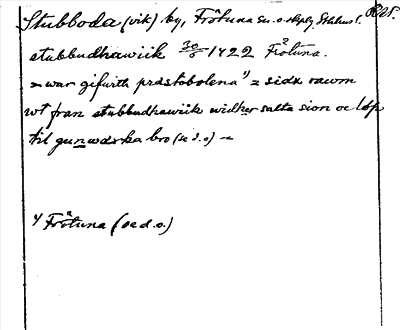 Stubboda (vik) by, Frötuna sn. o. skplg. Sthlms l.
stubbudhawiik 30/6 1422 Frötuna.
~ war gifwith prästobolena 1) = sidx rawm
wt fran stubbudhawiik widher salta sion oc löp
til gunwdrka bro (se d.o) ~
1) Frötuna (se d.o.)